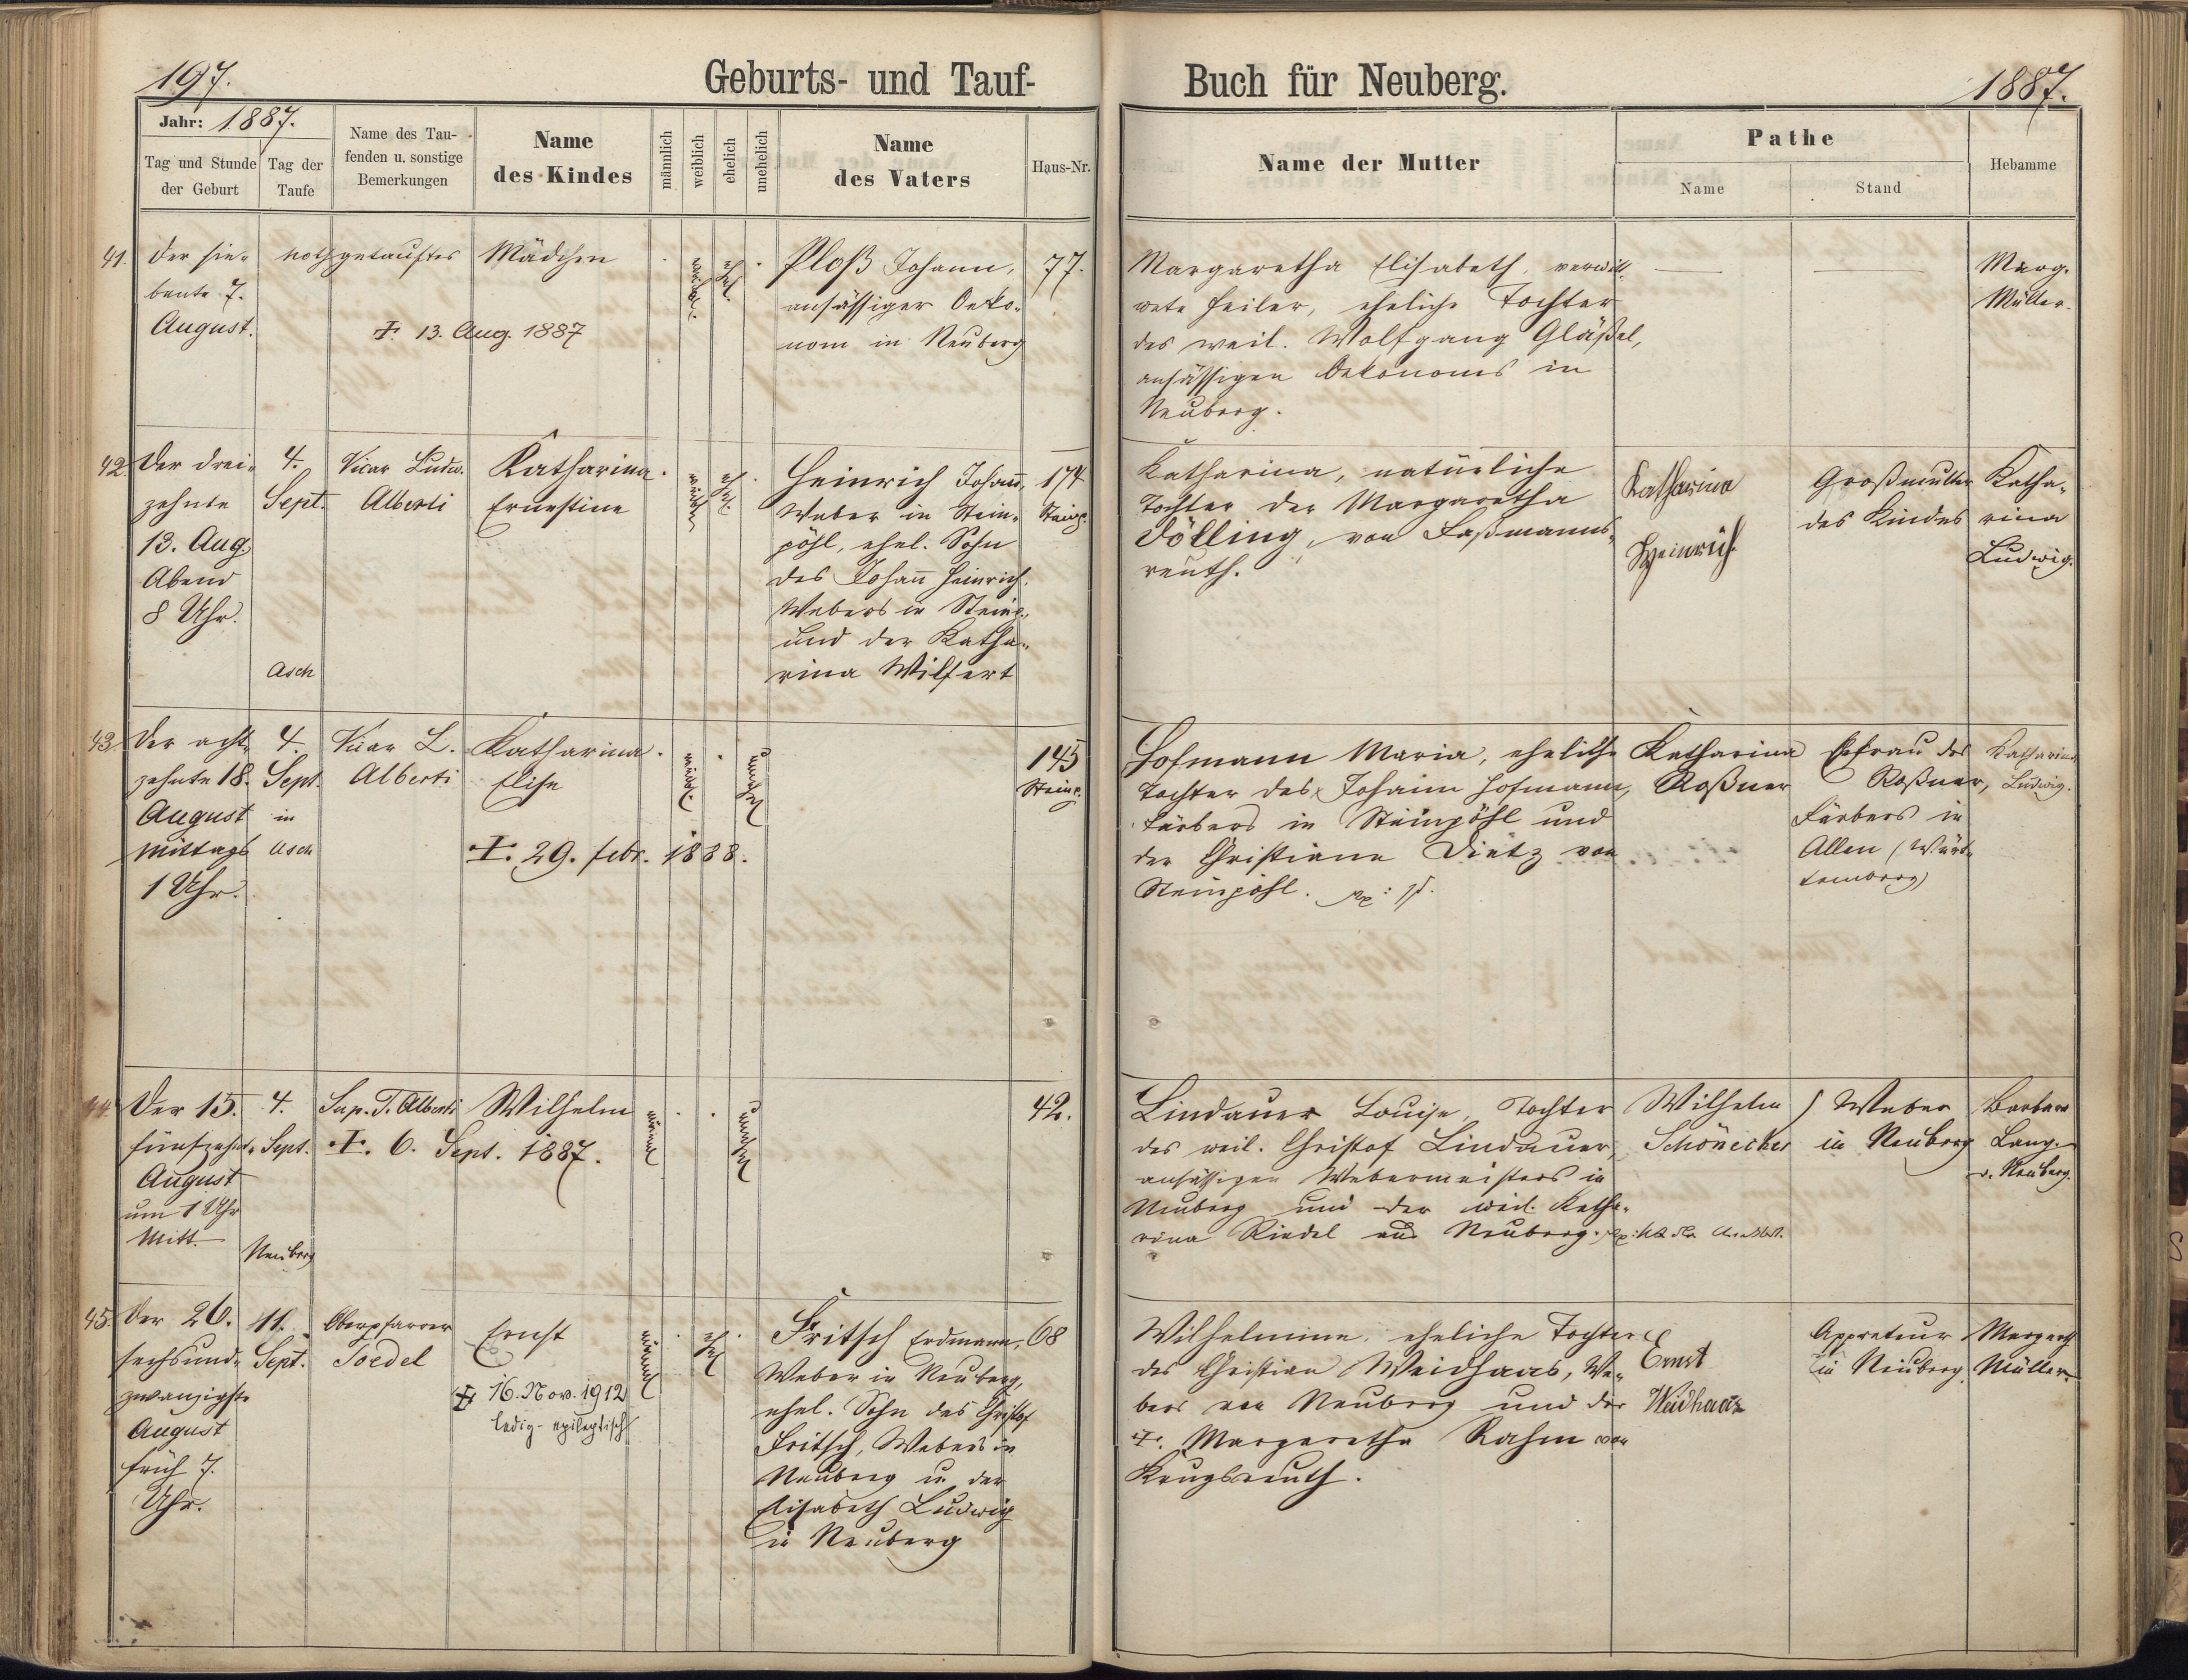 197.
Geburts- und Tauf-
Buch für Neuberg.
1887.
Jahr: 1887.
Tag und Stunde
der Geburt
Tag der
Taufe
Name des Tau-
fenden u. sonstige
Bemerkungen
Name
des Kindes
männlich
weiblich
ehelich
unehelich
Name
des Vaters
Haus-Nr.
Name der Mutter
Pathe
Name
Stand
Hebamme
41.
Der sie-
bente 7.
August.
nothgetauftes Mädchen
+ 13. Aug. 1887
weibl.
ehel.
Ploß Johann,
ansässiger Oeko-
nom in Neuberg
77.
Margaretha Elisabeth, verwitt-
wete Feiler, eheliche Tochter
des weil. Wolfgang Gläßel,
ansässigen Oekonoms in
Neuberg.
Marg.
Müller.
42.
Der drei-
zehnte
13. Aug.
Abend
8 Uhr.
4.
Sept.
Asch
Vicar Ludw.
Alberti
Katharina
Ernestine
weibl.
ehel.
Heinrich Johann,
Weber in Stein-
pöhl, ehel. Sohn
des Johann Heinrich,
Webers in Steinp.
und der Katha-
rina Wilfert
174
Steinp.
Katharina, natürliche
Tochter der Margaretha
Dölling, von Faßmanns-
reuth.
Katharina
Heinrich
Großmutter
des Kindes
Katha-
rina
Ludwig.
43.
Der acht-
zehnte 18.
August
Mittags
1 Uhr.
4.
Sept.
in
Asch
Vicar L.
Alberti
Katharina
Elise
+. 29. Febr. 1888.
weibl.
unehel.
145
Steinp.
Hofmann Maria, eheliche
Tochter des Johann Hofmann,
Färbers in Steinpöhl und
der Christiane Dietz von
Steinpöhl.
Katharina
Roßner
Ehefrau des
Roßner,
Färbers in
Allen (Würt-
temberg)
Katharina
Ludwig.
44.
Der 15.
fünfzehnte
August
um 1 Uhr
Mitt.
4.
Sept.
Neuberg
Sup. T. Alberti
Wilhelm
+. 6. Sept. 1887.
männl.
unehel.
42.
Lindauer Louise, Tochter
des weil. Christof Lindauer,
ansässigen Webermeisters in
Neuberg und der weil. Katha-
rina Riedel aus Neuberg.
Wilhelm
Schönecker
Weber
in Neuberg
Barbara
Lang.
v. Neuberg.
45.
Der 26.
sechsund-
zwanzigste
August
früh 7.
Uhr.
11.
Sept.
Oberpfarrer
Toedel
Ernst
+ 16. Nov. 1912
ledig - epileptisch
männl.
ehel.
Fritsch Erdmann,
Weber in Neuberg,
ehel. Sohn des Christof
Fritsch, Webers in
Neuberg u. der
Elisabeth Ludwig
in Neuberg
68
Wilhelmine, eheliche Tochter
des Christian Weidhaas, We-
bers von Neuberg und der
+. Margaretha Rahm von
Krugsreuth.
Ernst
Weidhaas
Appreteur
in Neuberg.
Margareth
Müller.